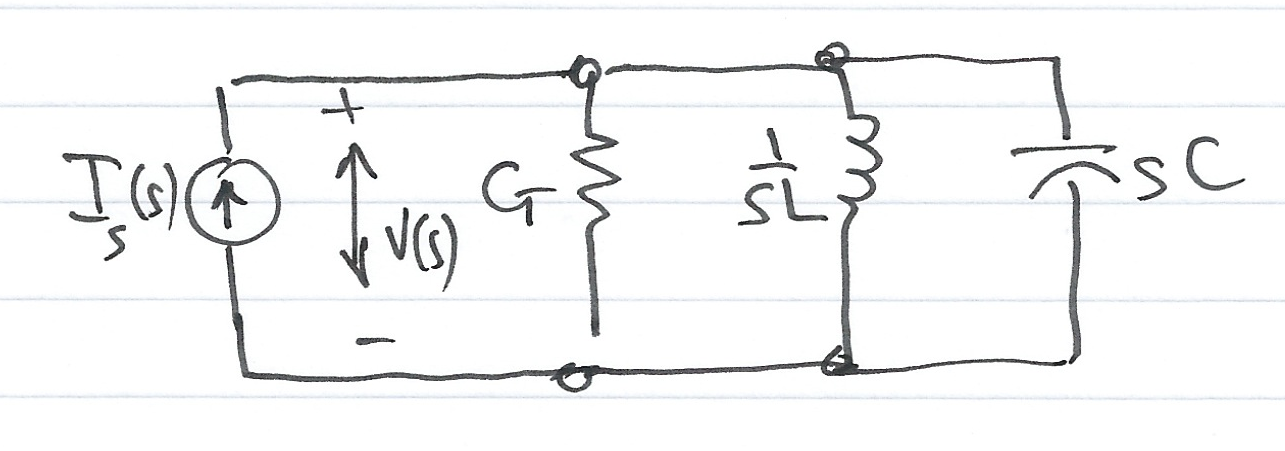 I_s(s)
+
V(s)
−
G
1/sL
sC